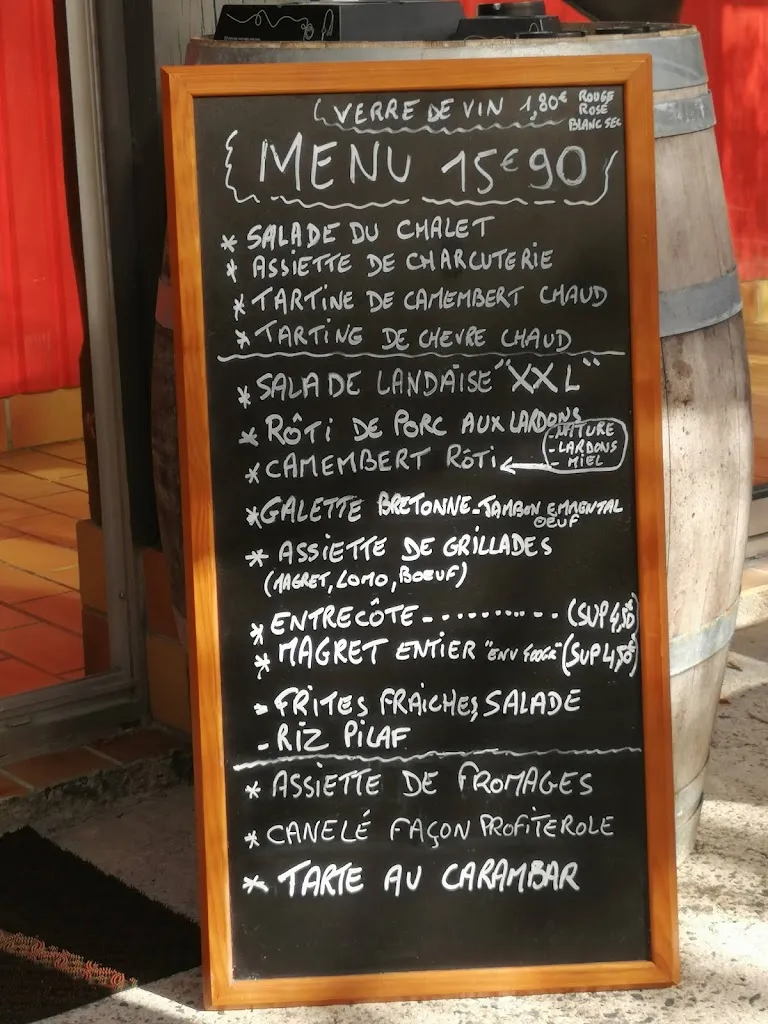 VERRE DE VIN 1,80€ ROUGE
ROSÉ
BLANC SEC
MENU 15€90
* SALADE DU CHALET
* ASSIETTE DE CHARCUTERIE
* TARTINE DE CAMEMBERT CHAUD
* TARTINE DE CHEVRE CHAUD
* SALADE LANDAISE "XXL"
* RÔTI DE PORC AUX LARDONS
* CAMEMBERT RÔTI
- NATURE
- LARDONS
- MIEL
* GALETTE BRETONNE - JAMBON EMMENTAL
OEUF
* ASSIETTE DE GRILLADES
(MAGRET, LOMO, BOEUF)
* ENTRECÔTE - - - - - - - - - - (SUP 4,50€)
* MAGRET ENTIER "ENV 400GR" (SUP 4,50€)
- FRITES FRAICHES, SALADE
- RIZ PILAF
* ASSIETTE DE FROMAGES
* CANELÉ FAÇON PROFITEROLE
* TARTE AU CARAMBAR